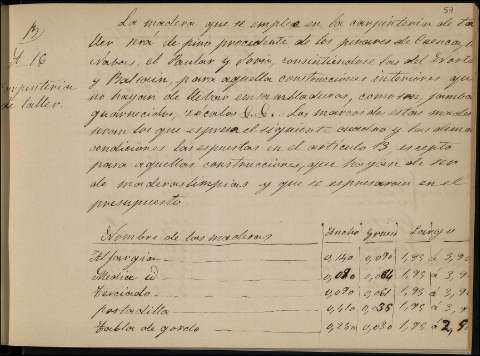 59
B)
A 16
Carpinteria
de taller.
La madera que se emplee en la carpinteria de Ta
ller será de pino procedente de los pinares de Cuenca,
el Paular y Soria, consintiendose las del
y Balsain, para aquellas construcciones interiores que
no hayan de llevar ensambladuras, como son, jamba
guarnecidos, zocalos &. &. Las marcas de estas made
seran las que espresa el siguiente cuadro y las demas
condiciones las espuestas en el articulo 13 escepto
para aquellas construcciones, que hayan de ser
de maderas limpias y que se espresaran en el
presupuesto.
Nombre de las maderas Ancho Grueso Largo
Alfargia 0,140 0,090 1,95 á 3,90
Media id 0,080 0,064 1,95 á 3,90
Terciado 0,090 0,061 1,95 á 3,90
portadilla 0,035 1,95 á 3,9
Tabla de gordo 0,250 0,030 1,95 á 2,5